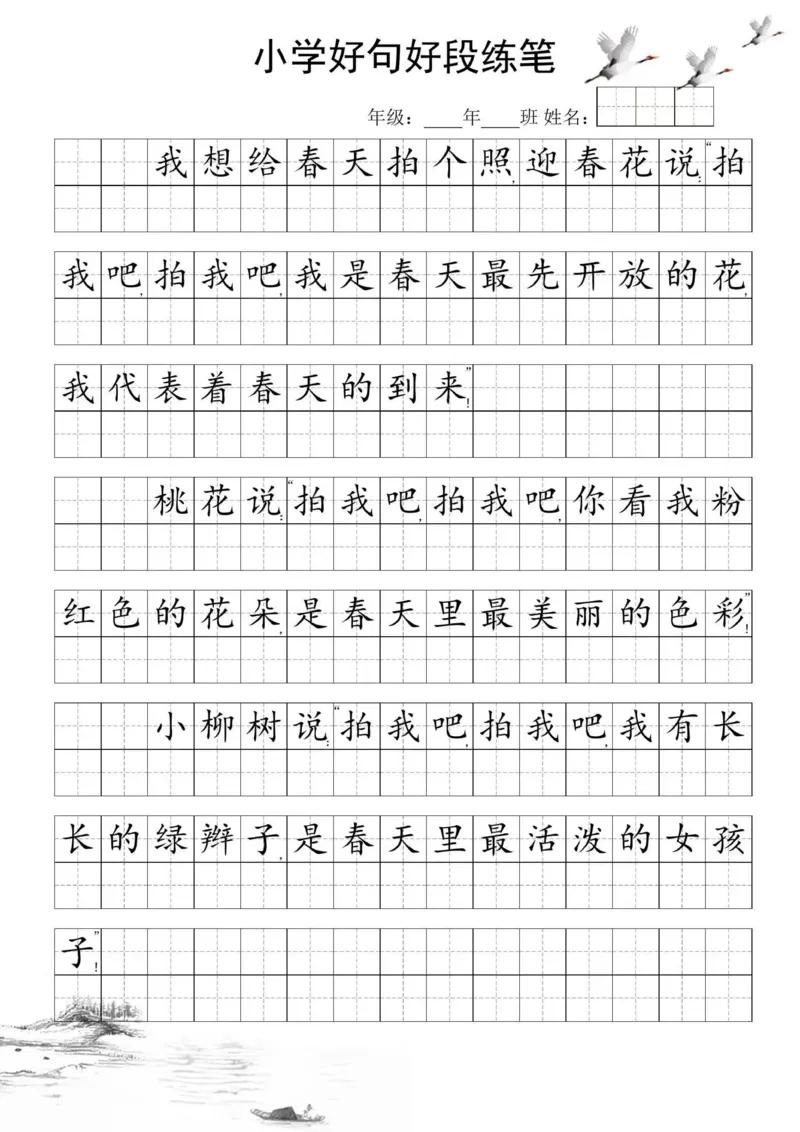 小学好句好段练笔
年级：____年____班 姓名：
我想给春天拍个照，迎春花说：“拍
我吧，拍我吧，我是春天最先开放的花，
我代表着春天的到来！”
桃花说：“拍我吧，拍我吧，你看我粉
红色的花朵，是春天里最美丽的色彩！”
小柳树说：“拍我吧，拍我吧，我有长
长的绿辫子，是春天里最活泼的女孩
子！”